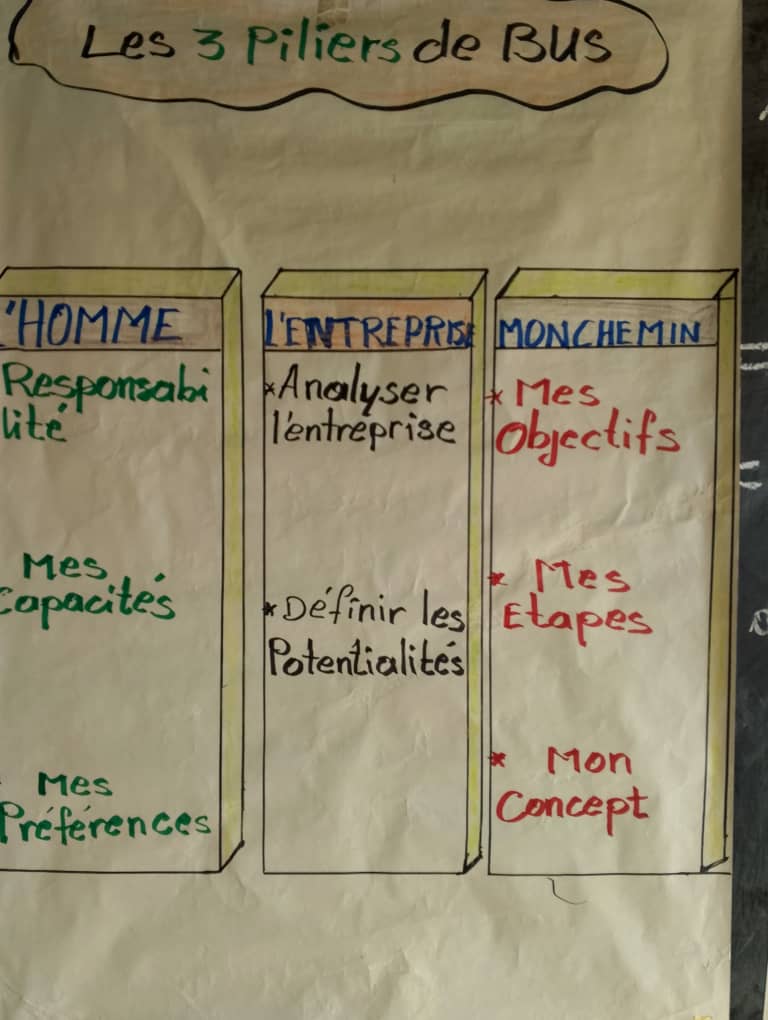 Les 3 Piliers de BUS
'HOMME
Responsabi
lité
Mes
Capacités
Mes
Préférences
L'ENTREPRISE
*Analyser
l'entreprise
*Définir les
Potentialités
MON CHEMIN
* Mes
Objectifs
* Mes
Etapes
* Mon
Concept